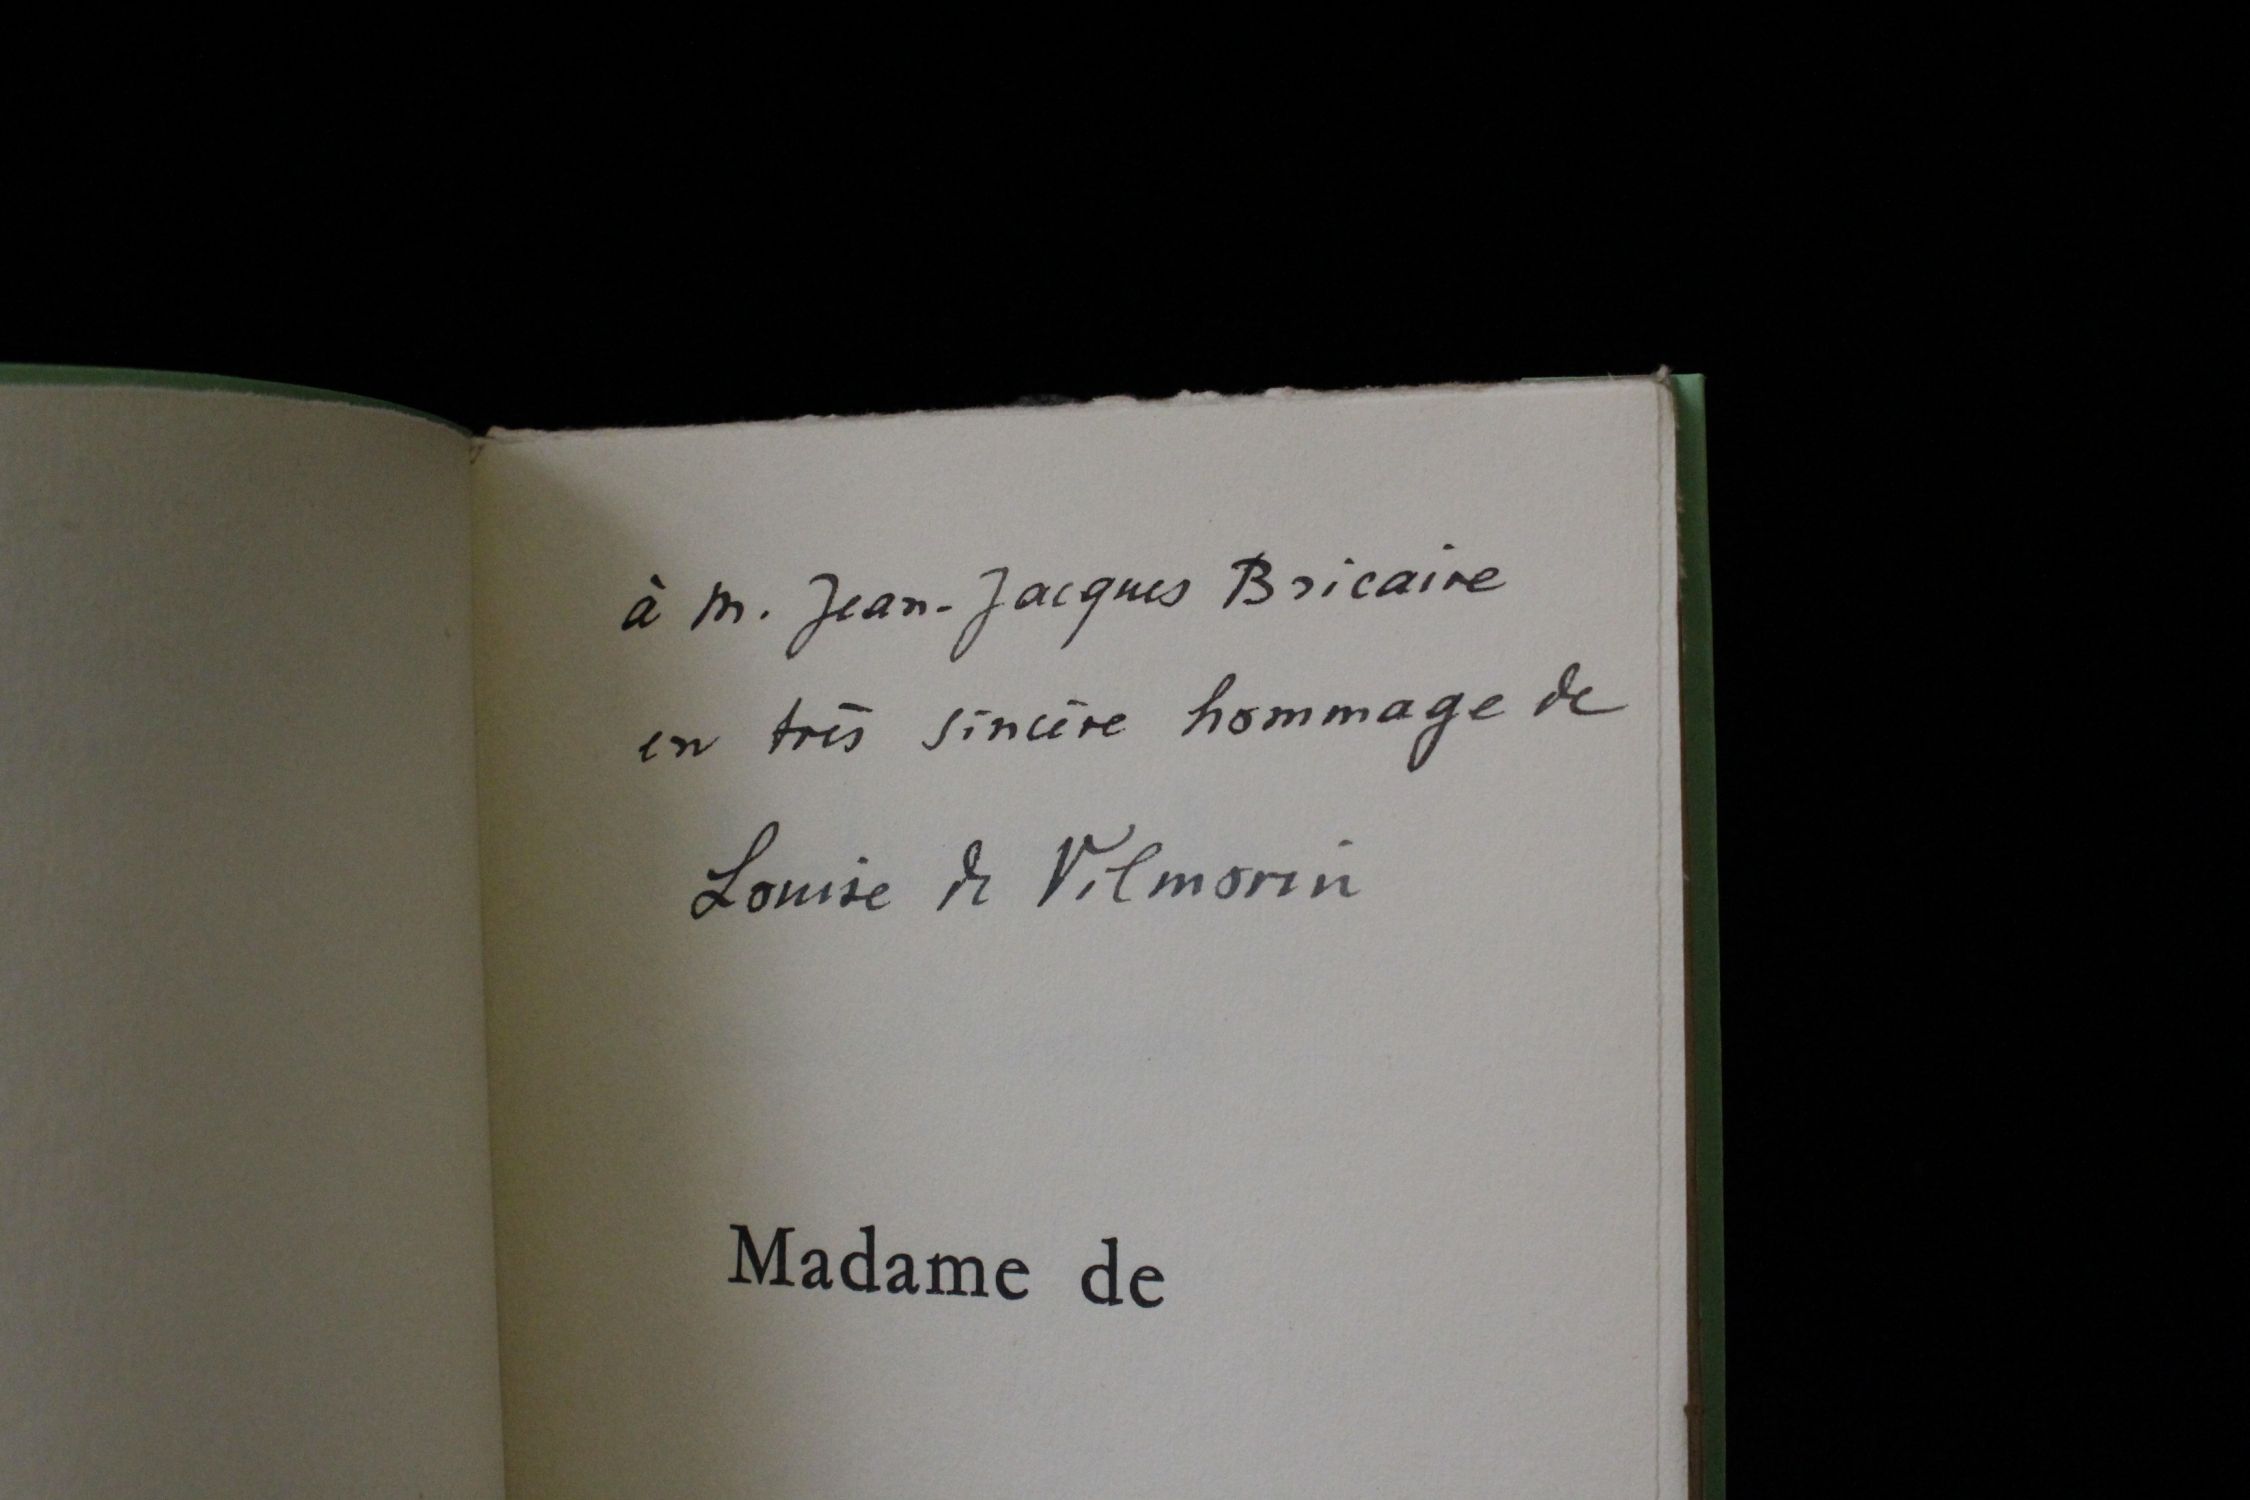 à M. Jean-Jacques Bricaire
en très sincère hommage de
Louise de Vilmorin
Madame de